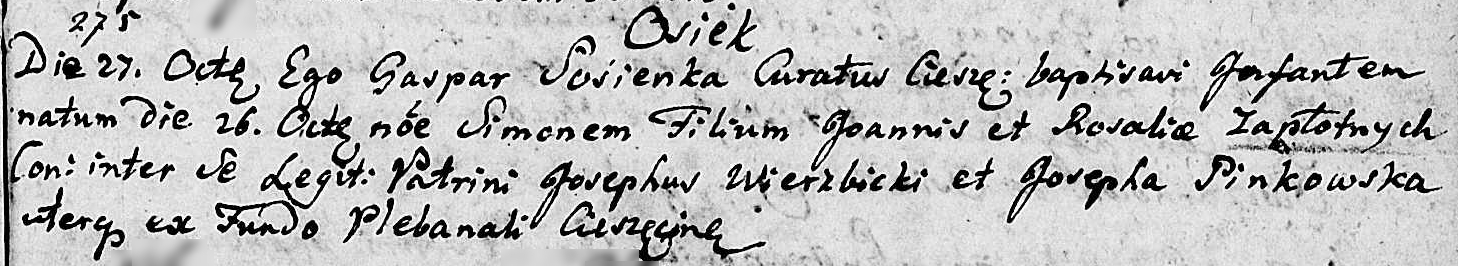 275
Osiek
Die 27. Octę Ego Gaspar Sosienka Curatus Cieszę: baptisavi Infantem
natum die 26. Octę nōe Simonem Filium Joannis et Rosaliæ Zapłotnych
Con: inter se Legit: Patrini Josephus Wierzbicki et Josepha Pinkowska
uterq ex Fundo Plebanali Cieszęcinę